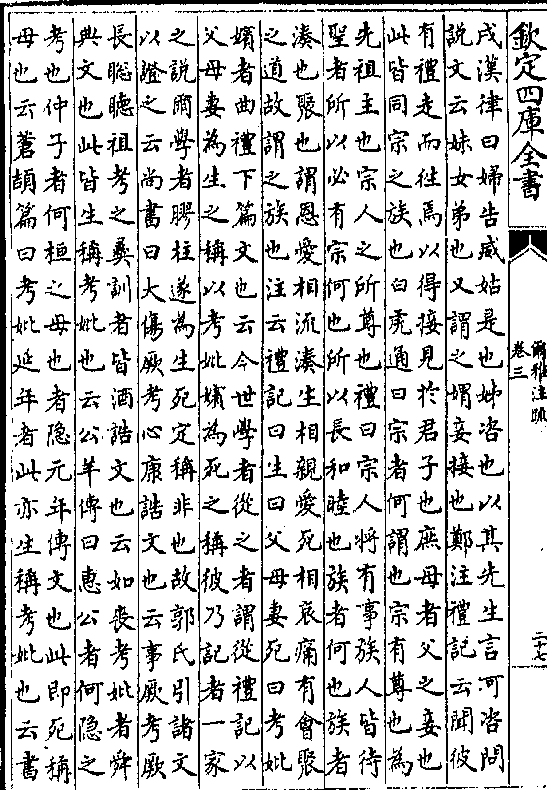 欽定四庫全書
爾雅注疏
卷三
二十七
戌漢律曰婦告威姑是也姊咨也以其先生言可咨問
説文云妹女弟也又謂之媦妾接也鄭注禮記云聞彼
有禮走而往焉以得接見於君子也庶母者父之妾也
此皆同宗之族也白虎通曰宗者何謂也宗有尊也為
先祖主也宗人之所尊也禮曰宗人將有事族人皆待
聖者所以必有宗何也所以長和睦也族者何也族者
湊也聚也謂恩愛相流湊生相親愛死相哀痛有會聚
之道故謂之族也注云禮記曰生曰父母妻死曰考妣
嬪者曲禮下篇文也云今世學者從之者謂從禮記以
父母妻為生之稱以考妣嬪為死之稱彼乃記者一家
之說爾學者膠柱遂為生死定稱非也故郭氏引諸文
以證之云尚書曰大傷厥考心康誥文也云事厥考厥
長聡聽祖考之彞訓者皆酒誥文也云如喪考妣者舜
典文也此皆生稱考妣也云公羊傳曰惠公者何隐之
考也仲子者何桓之母也者隐元年傳文也此即死稱
母也云蒼頡篇曰考妣延年者此亦生稱考妣也云書